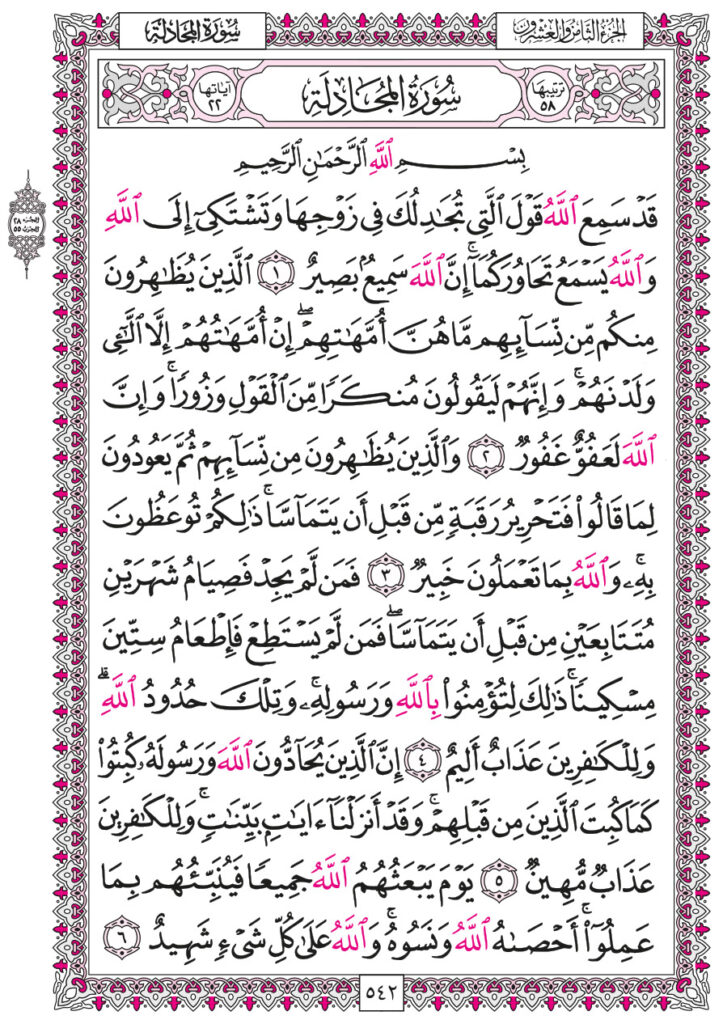 الجزء الثامن والعشرون
سورة المجادلة
ترتيبها ٥٨
سُورَةُ المُجَادلَةِ
آياتها ٢٢
بِسْمِ ٱللَّهِ ٱلرَّحْمَٰنِ ٱلرَّحِيمِ
قَدْ سَمِعَ ٱللَّهُ قَوْلَ ٱلَّتِي تُجَٰدِلُكَ فِي زَوْجِهَا وَتَشْتَكِيٓ إِلَى ٱللَّهِ
وَٱللَّهُ يَسْمَعُ تَحَاوُرَكُمَآۚ إِنَّ ٱللَّهَ سَمِيعٌۢ بَصِيرٌ ١ ٱلَّذِينَ يُظَٰهِرُونَ
مِنكُم مِّن نِّسَآئِهِم مَّا هُنَّ أُمَّهَٰتِهِمْۖ إِنْ أُمَّهَٰتُهُمْ إِلَّا ٱلَّٰٓـِٔي
وَلَدْنَهُمْۚ وَإِنَّهُمْ لَيَقُولُونَ مُنكَرًا مِّنَ ٱلْقَوْلِ وَزُورًاۚ وَإِنَّ
ٱللَّهَ لَعَفُوٌّ غَفُورٌ ٢ وَٱلَّذِينَ يُظَٰهِرُونَ مِن نِّسَآئِهِمْ ثُمَّ يَعُودُونَ
لِمَا قَالُوا۟ فَتَحْرِيرُ رَقَبَةٍ مِّن قَبْلِ أَن يَتَمَآسَّاۚ ذَٰلِكُمْ تُوعَظُونَ
بِهِۦۚ وَٱللَّهُ بِمَا تَعْمَلُونَ خَبِيرٌ ٣ فَمَن لَّمْ يَجِدْ فَصِيَامُ شَهْرَيْنِ
مُتَتَابِعَيْنِ مِن قَبْلِ أَن يَتَمَآسَّاۖ فَمَن لَّمْ يَسْتَطِعْ فَإِطْعَامُ سِتِّينَ
مِسْكِينًاۚ ذَٰلِكَ لِتُؤْمِنُوا۟ بِٱللَّهِ وَرَسُولِهِۦۚ وَتِلْكَ حُدُودُ ٱللَّهِۗ
وَلِلْكَٰفِرِينَ عَذَابٌ أَلِيمٌ ٤ إِنَّ ٱلَّذِينَ يُحَآدُّونَ ٱللَّهَ وَرَسُولَهُۥ كُبِتُوا۟
كَمَا كُبِتَ ٱلَّذِينَ مِن قَبْلِهِمْۚ وَقَدْ أَنزَلْنَآ ءَايَٰتٍۭ بَيِّنَٰتٍۚ وَلِلْكَٰفِرِينَ
عَذَابٌ مُّهِينٌ ٥ يَوْمَ يَبْعَثُهُمُ ٱللَّهُ جَمِيعًا فَيُنَبِّئُهُم بِمَا
عَمِلُوٓا۟ۚ أَحْصَىٰهُ ٱللَّهُ وَنَسُوهُۚ وَٱللَّهُ عَلَىٰ كُلِّ شَيْءٍ شَهِيدٌ ٦
الجزء ٢٨
الحزب ٥٥
٥٤٢